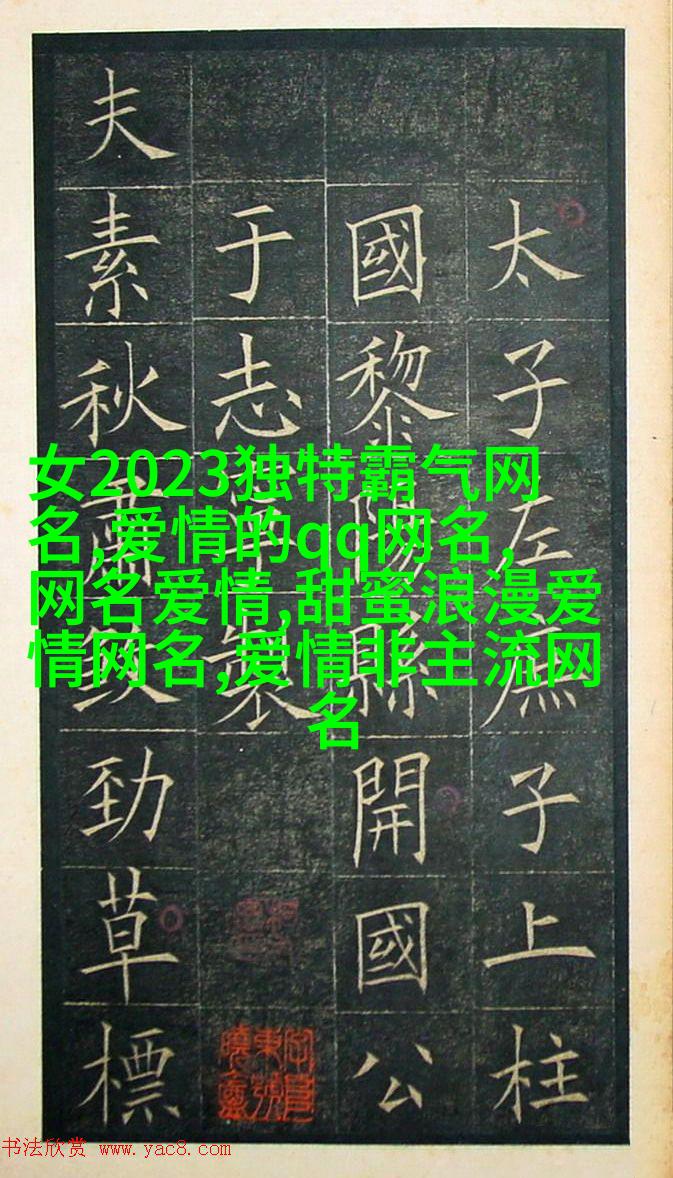 太子左庶子上柱
國黎陽縣開國公
于志寧製
夫素秋肅勁草標
女2023独特霸气网
名,爱情的qq网名,
网名爱情,甜蜜浪漫爱
情网名,爱情非主流网
名
书法欣赏 www.yac8.com